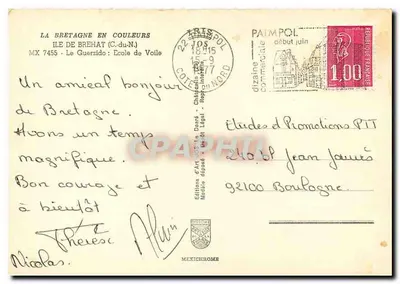 LA BRETAGNE EN COULEURS
ILE DE BREHAT (C.-du-N.)
MX 7455 - Le Guerzido : Ecole de Voile
Un amical bonjour
de Bretagne.
Avons un temps
magnifique.
Bon courage et
à bientôt
Thérèse
Nicolas.
Editions d'Art
MEXICHROME
22 PAIMPOL
18H15
COTES DU NORD
PAIMPOL
début juin
dizaine
commerciale
1,00
Etudes et Promotions PTT
210 Bd Jean Jaurès
92100 Boulogne
CPARAMA